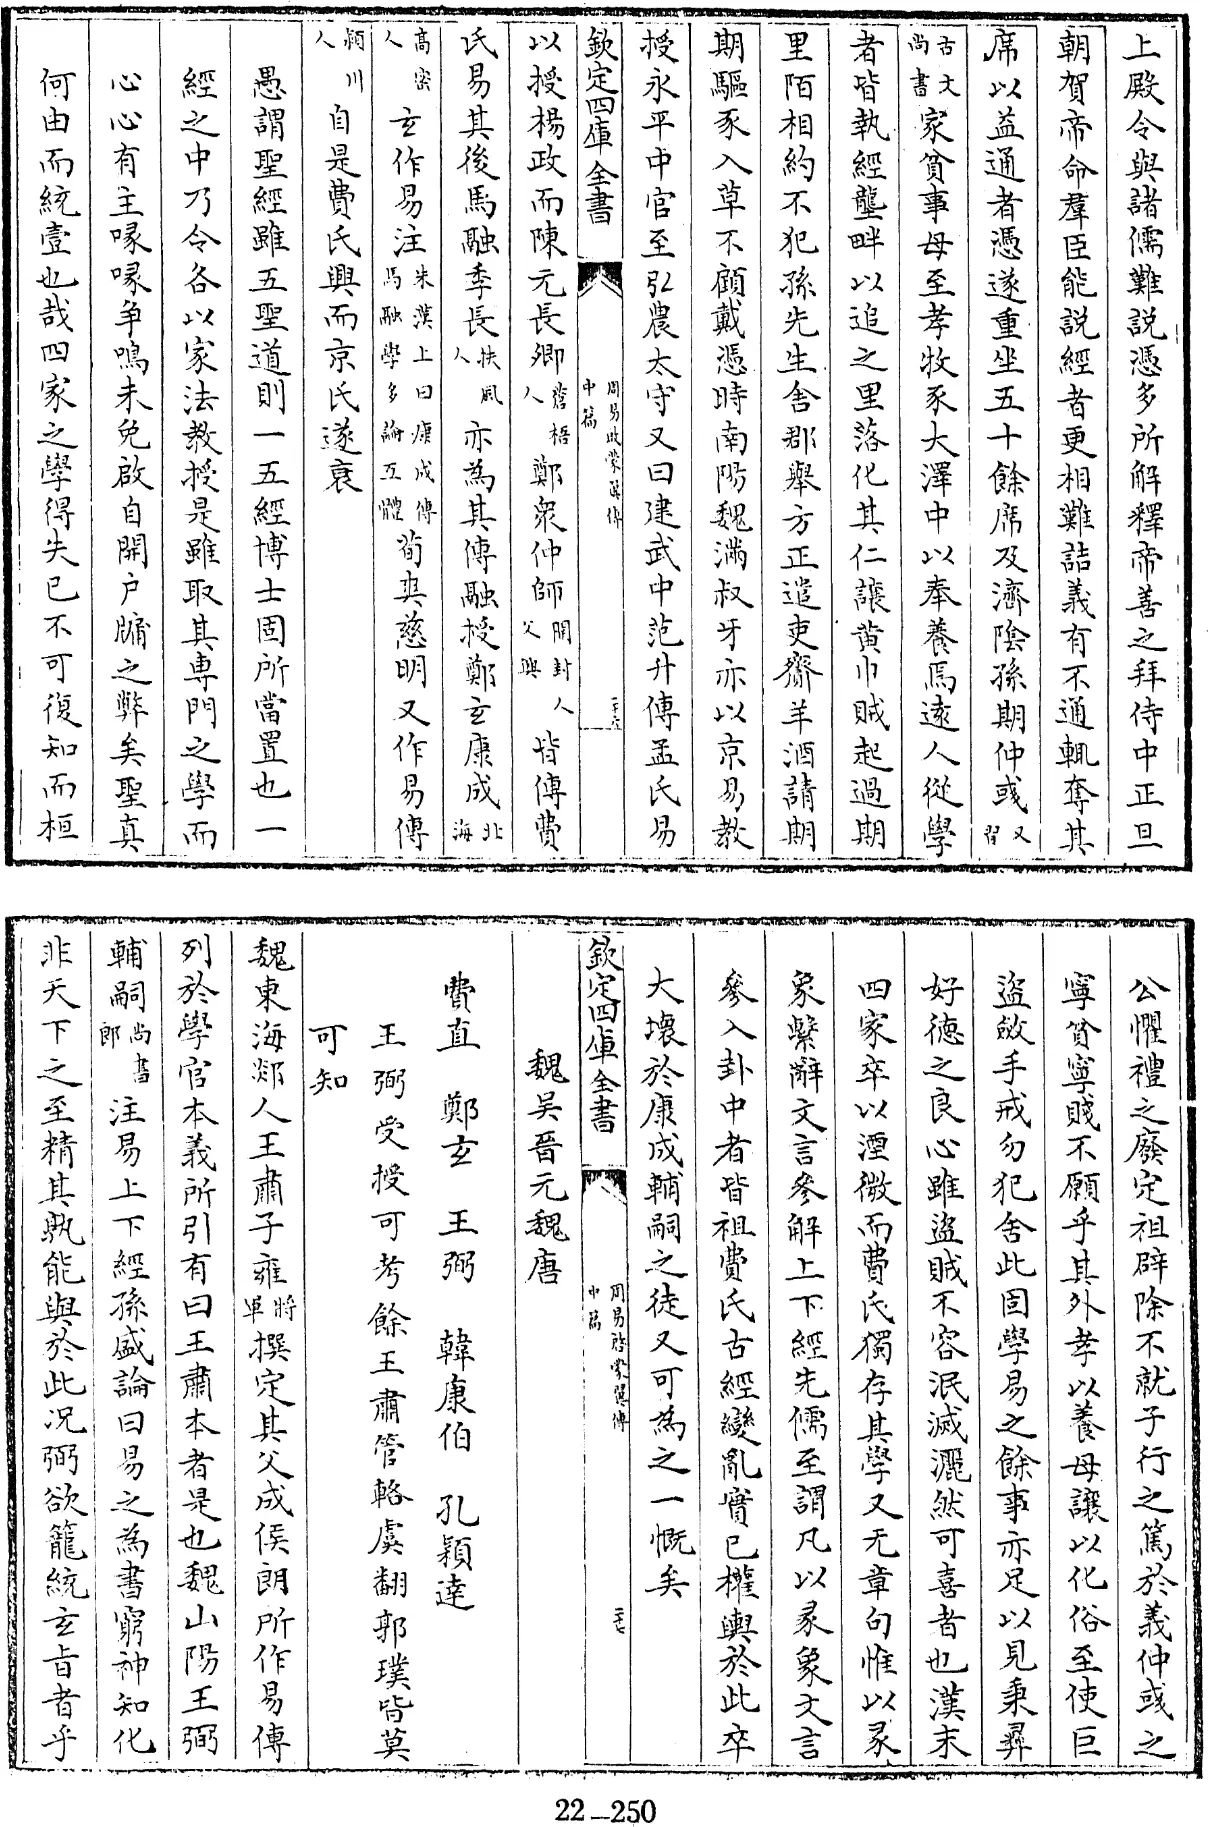 上殿令與諸儒難説憑多所解釋帝善之拜侍中正旦
朝賀帝命羣臣能説經者更相難詰義有不通輙奪其
席以益通者憑遂重坐五十餘席及濟隂孫期仲彧又習
古文尚書家貧事母至孝牧豕大澤中以奉養焉逺人從學
者皆執經壟畔以追之里落化其仁讓黄巾賊起過期
里陌相約不犯孫先生舍郡舉方正遣吏齎羊酒請期
期驅豕入草不顧戴憑時南陽魏滿叔牙亦以京易教
授永平中官至弘農太守又曰建武中范升傳孟氏易
欽定四庫全書
周易啟蒙翼傳中篇
二十六
以授楊政而陳元長卿蒼梧人鄭衆仲師開封人父興皆傳費
氏易其後馬融季長扶風人亦為其傳融授鄭玄康成北海
高密人玄作易注朱漢上曰康成傳馬融學多論互體荀爽慈明又作易傳
潁川人自是費氏興而京氏遂衰
愚謂聖經雖五聖道則一五經博士固所當置也一
經之中乃令各以家法教授是雖取其専門之學而
心心有主喙喙争鳴未免啟自開户牖之弊矣聖真
何由而統壹也哉四家之學得失已不可復知而桓
公懼禮之廢定祖辟除不就子行之篤於義仲彧之
寧貧寧賤不願乎其外孝以養母讓以化俗至使巨
盜斂手戒勿犯舍此固學易之餘事亦足以見秉彛
好徳之良心雖盜賊不容泯滅灑然可喜者也漢末
四家卒以湮微而費氏獨存其學又无章句惟以彖
象繫辭文言參解上下經先儒至謂凡以彖象文言
參入卦中者皆祖費氏古經變亂實已權輿於此卒
大壞於康成輔嗣之徒又可為之一慨矣
欽定四庫全書
周易啓蒙翼傳中篇
二十七
魏吴晉元魏唐
費直 鄭玄 王弼 韓康伯 孔穎達
王弼受授可考餘王肅管輅虞翻郭璞皆莫
可知
魏東海郯人王肅子雍將軍撰定其父成侯朗所作易傳
列於學官本義所引有曰王肅本者是也魏山陽王弼
輔嗣尚書郎注易上下經孫盛論曰易之為書窮神知化
非天下之至精其孰能與於此况弼欲籠統玄旨者乎
22—250